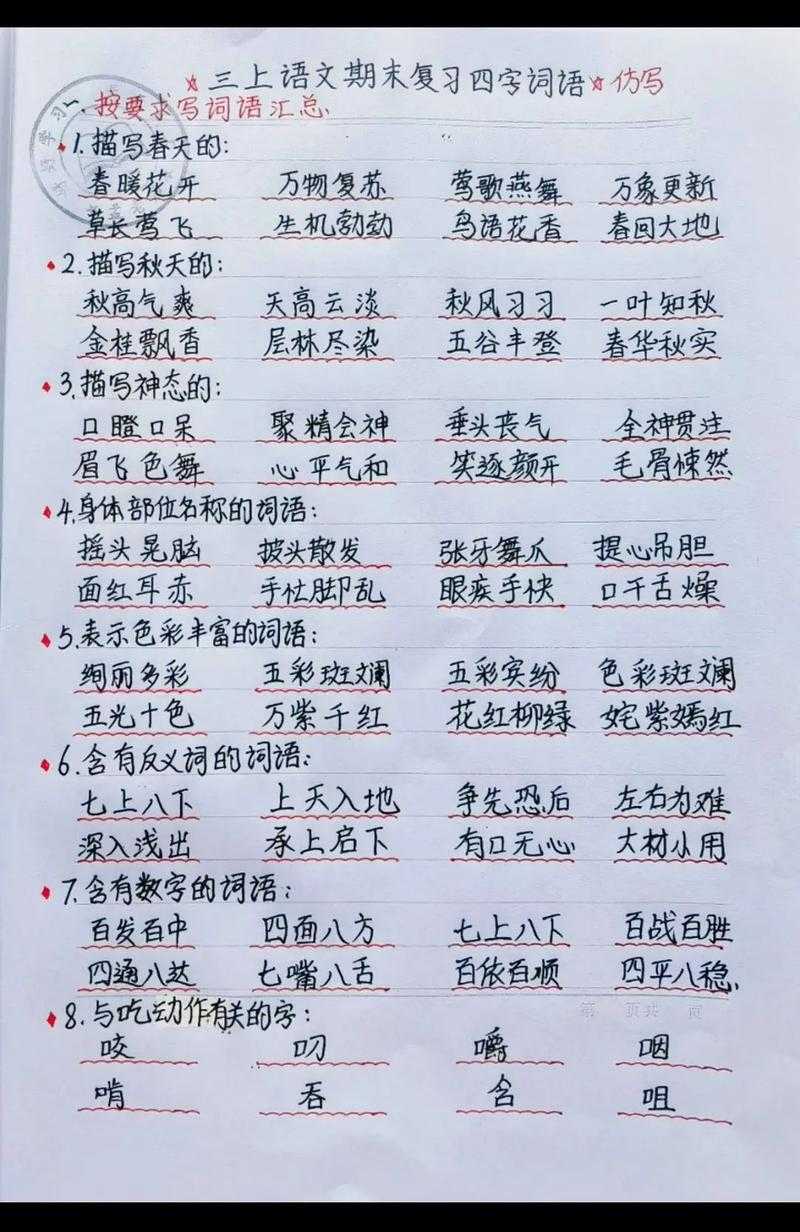 ☆三上语文期末复习四字词语☆仿写
一、按要求写词语汇总.
1.描写春天的:
春暖花开 万物复苏 莺歌燕舞 万象更新
草长莺飞 生机勃勃 鸟语花香 春回大地
2.描写秋天的:
秋高气爽 天高云淡 秋风习习 一叶知秋
金桂飘香 层林尽染 五谷丰登 春华秋实
3.描写神态的:
口瞪口呆 聚精会神 垂头丧气 全神贯注
眉飞色舞 心平气和 笑逐颜开 毛骨悚然
4.身体部位名称的词语:
摇头晃脑 披头散发 张牙舞爪 提心吊胆
面红耳赤 手忙脚乱 眼疾手快 口干舌燥
5.表示色彩丰富的词语:
绚丽多彩 五彩斑斓 五彩宾纷 色彩斑斓
五光十色 万紫千红 花红柳绿 姹紫嫣红
6.含有反义词的词语:
七上八下 上天入地 争先恐后 左右为难
深入浅出 承上启下 有口无心 大材小用
7.含有数字的词语:
百发百中 四面八方 七上八下 百战百胜
四通八达 七嘴八舌 百依百顺 四平八稳.
第 页共 页
8.与吃动作有关的字:
咬 叼 嚼 咽
啃 吞 含 咀